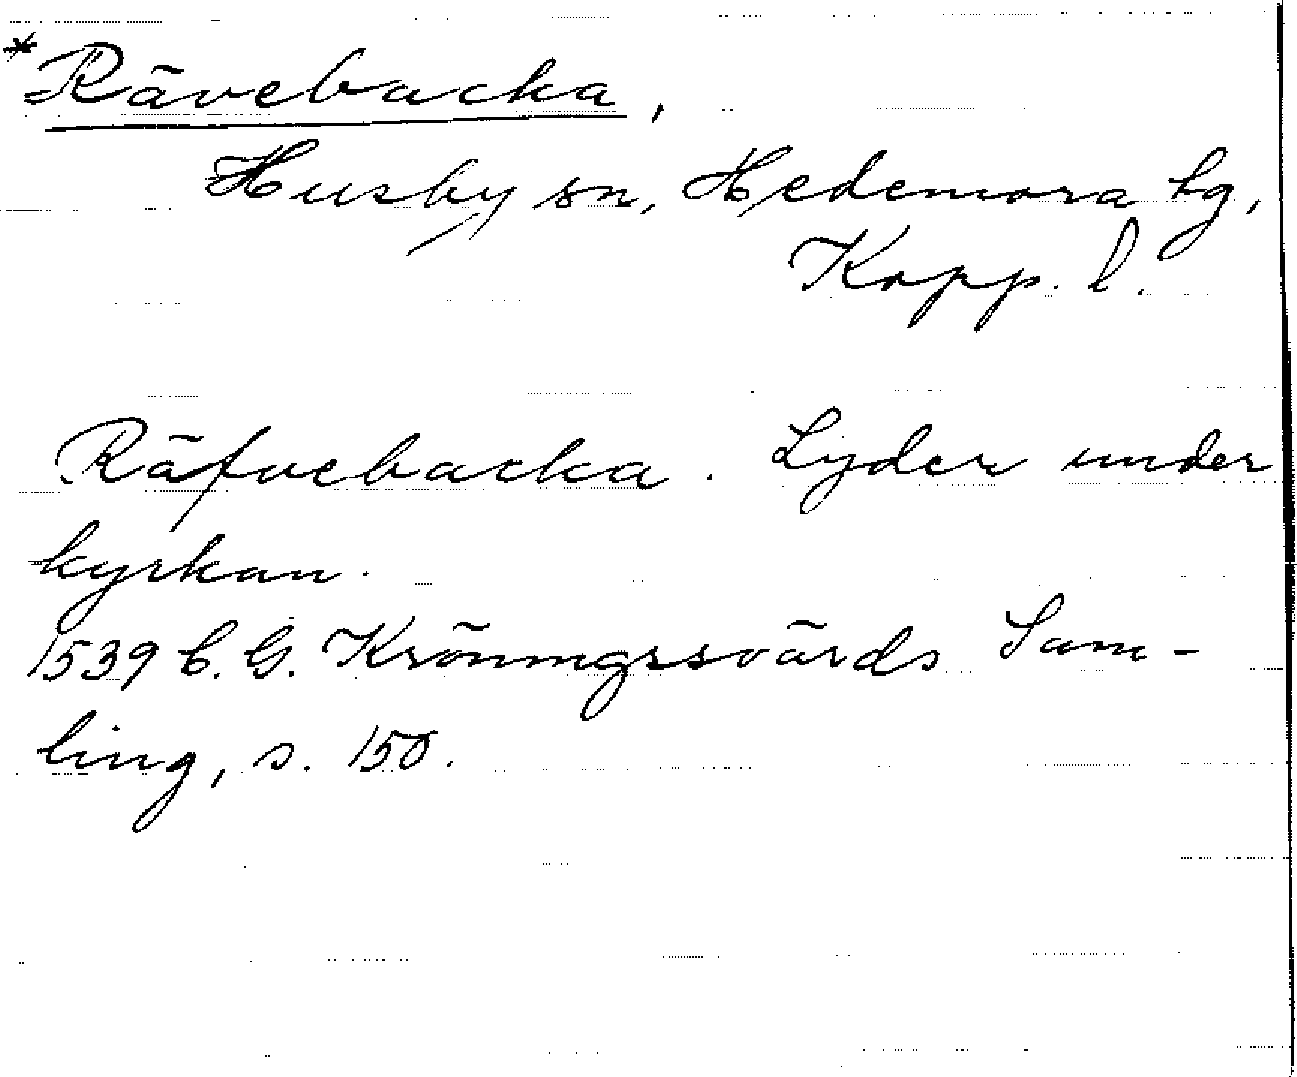 *Rävebacka,
Husby sn, Hedemora tg,
Kopp. l.
Räfvebacka. Lyder under
kyrkan.
1539 C. G. Kröningssvärds Sam-
ling, s. 150.